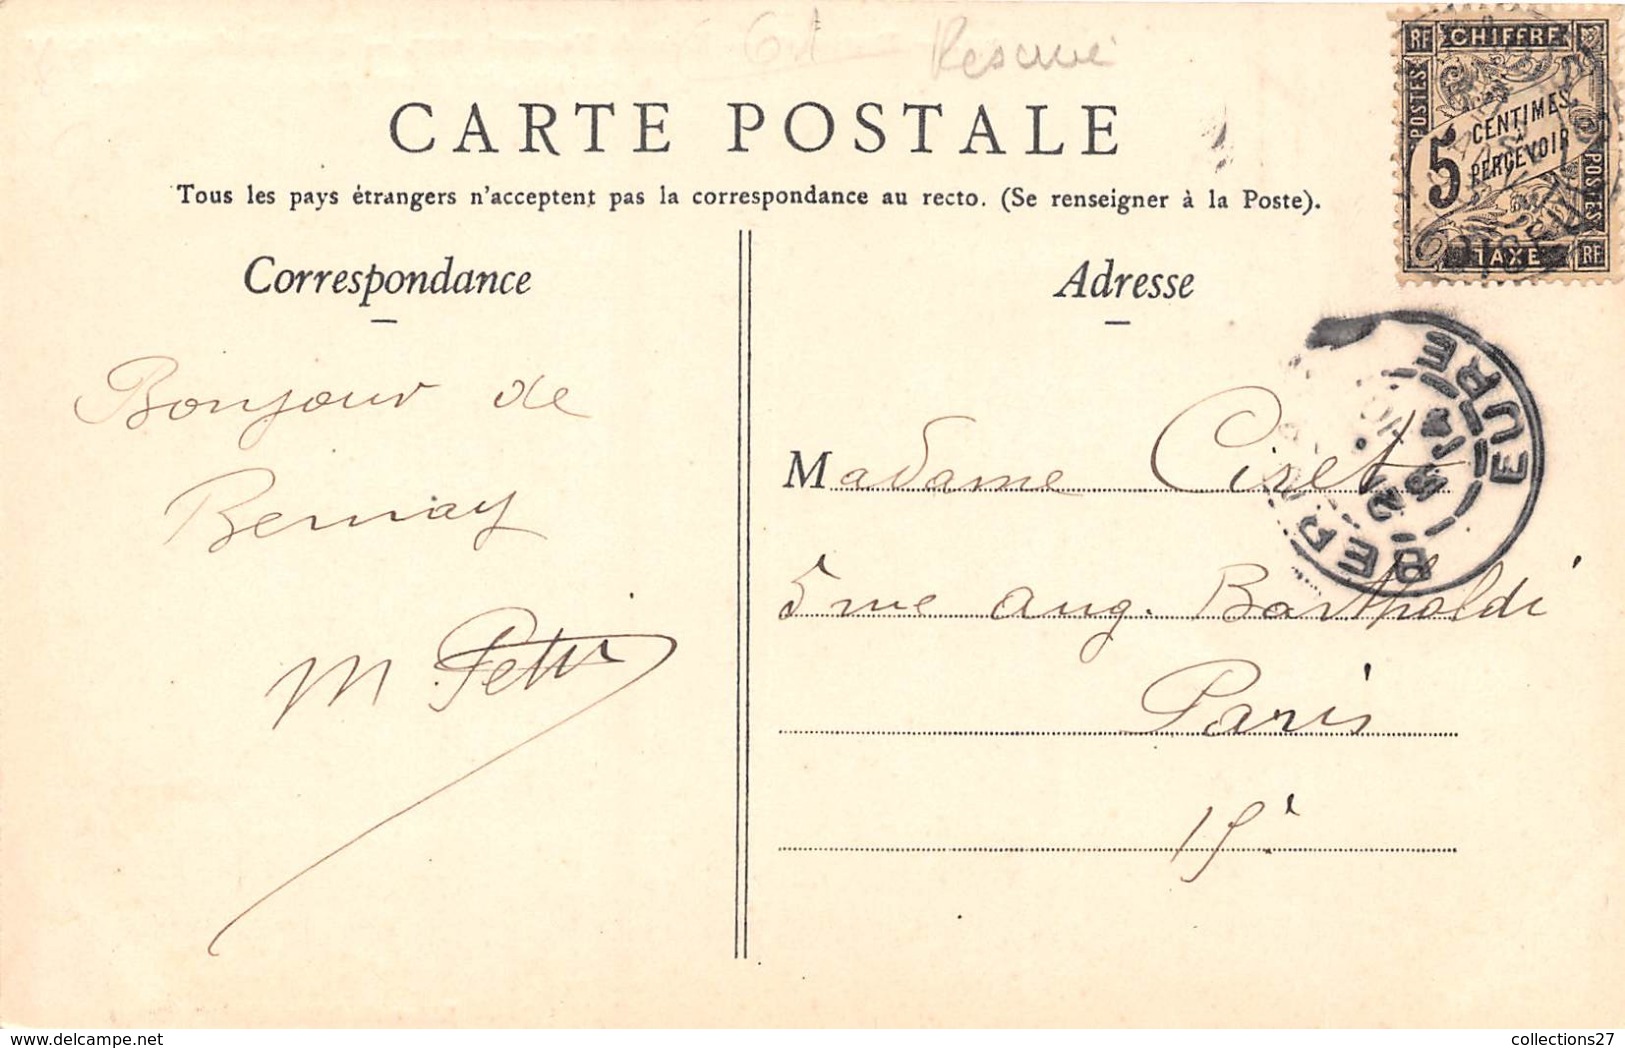 61 Resume
CARTE POSTALE
Tous les pays étrangers n'acceptent pas la correspondance au recto. (Se renseigner à la Poste).
Correspondance
Bonjour de
Bernay
M Petit
Adresse
Madame Ciret
5 rue Aug. Bartholdi
Paris
15è
RF CHIFFRE
POSTES
5 CENTIMES
À
PERCEVOIR
POSTES
TAXE RF
BERNAY
EURE
collections27